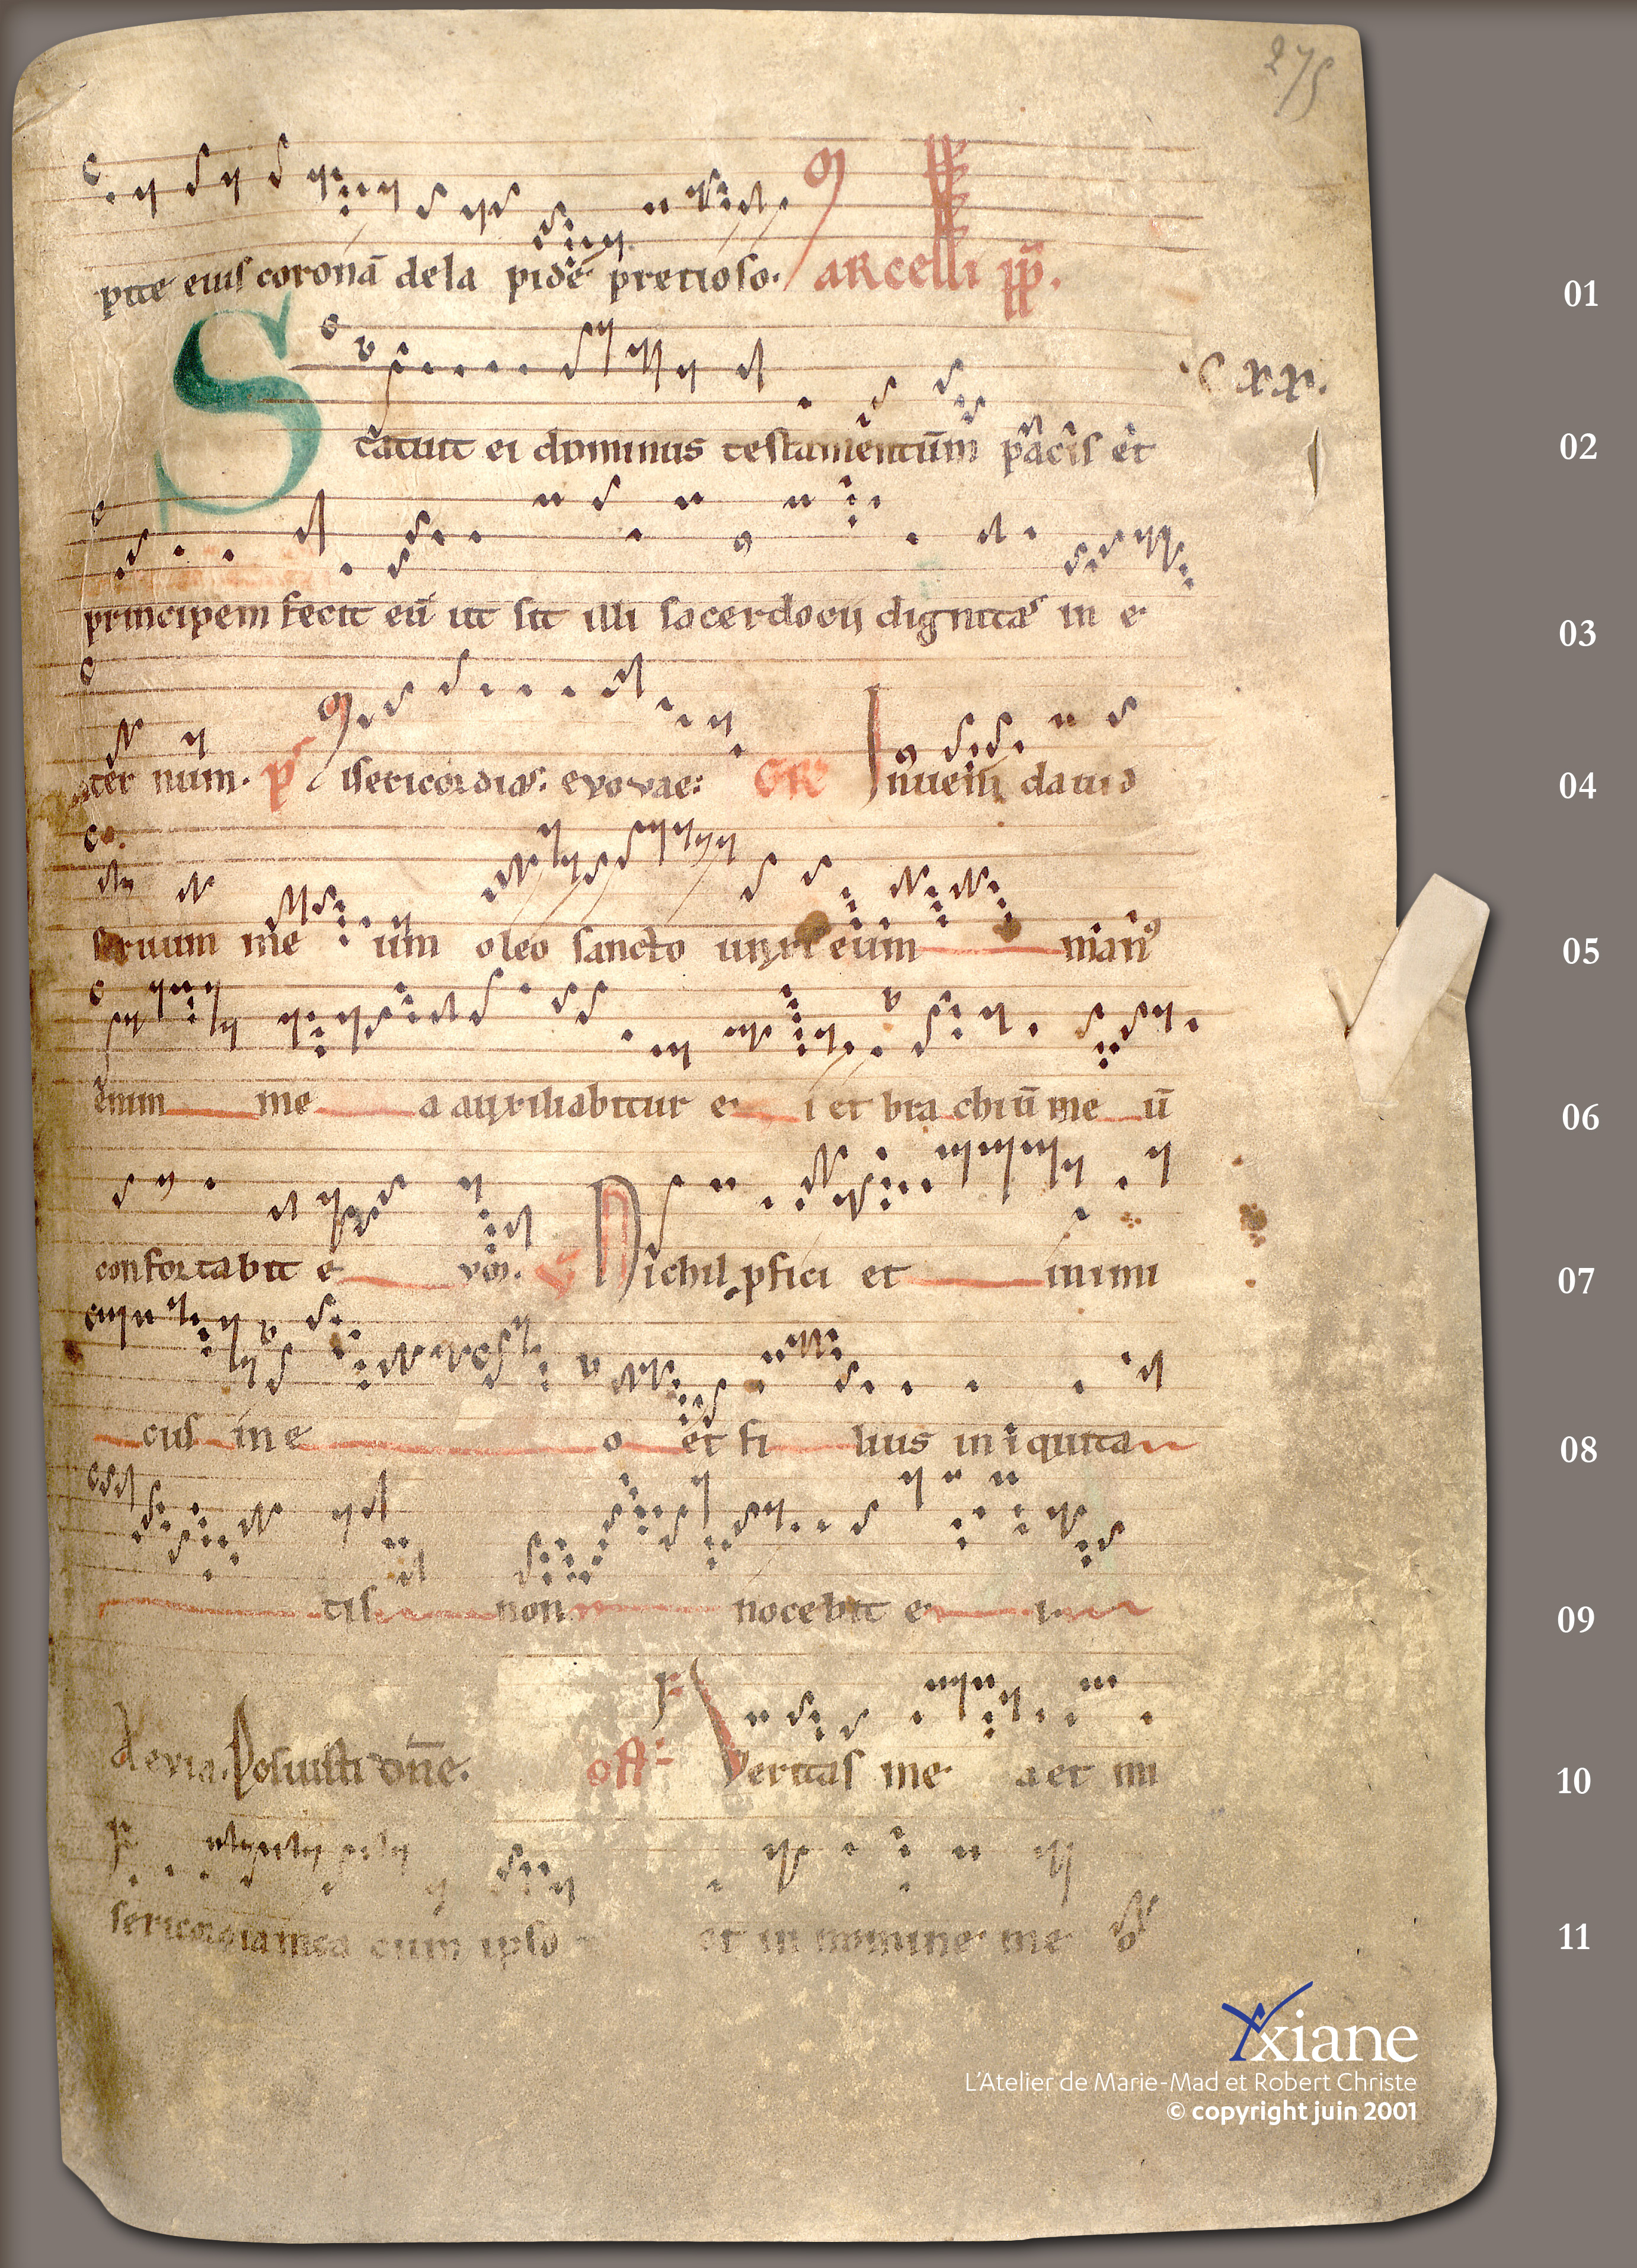 275
pite eius coronā de la pidē pretioso. Marcelli pp̄. 01
C xx.
Statuit ei dominus testamentūm pacis et 02
principem fecit eū ut sit illi sacerdocij dignitas in e 03
ter num. ps Misericordias. evovae: GR Inueni dauid 04
seruum me um oleo sancto unxi eum man⁹ 05
enim me a auxiliabitur e i et bra chiū me ū 06
confortabit e um. V Nichil pfici et inimi 07
cus in e o et fi lius in iquita 08
tis non nocebit e i 09
Alevia. Posuisti dn̄e. off Veritas me a et mi 10
sericordia mea cum ipso et in nomine me o 11
Yxiane
L'Atelier de Marie-Mad et Robert Christe
© copyright juin 2001